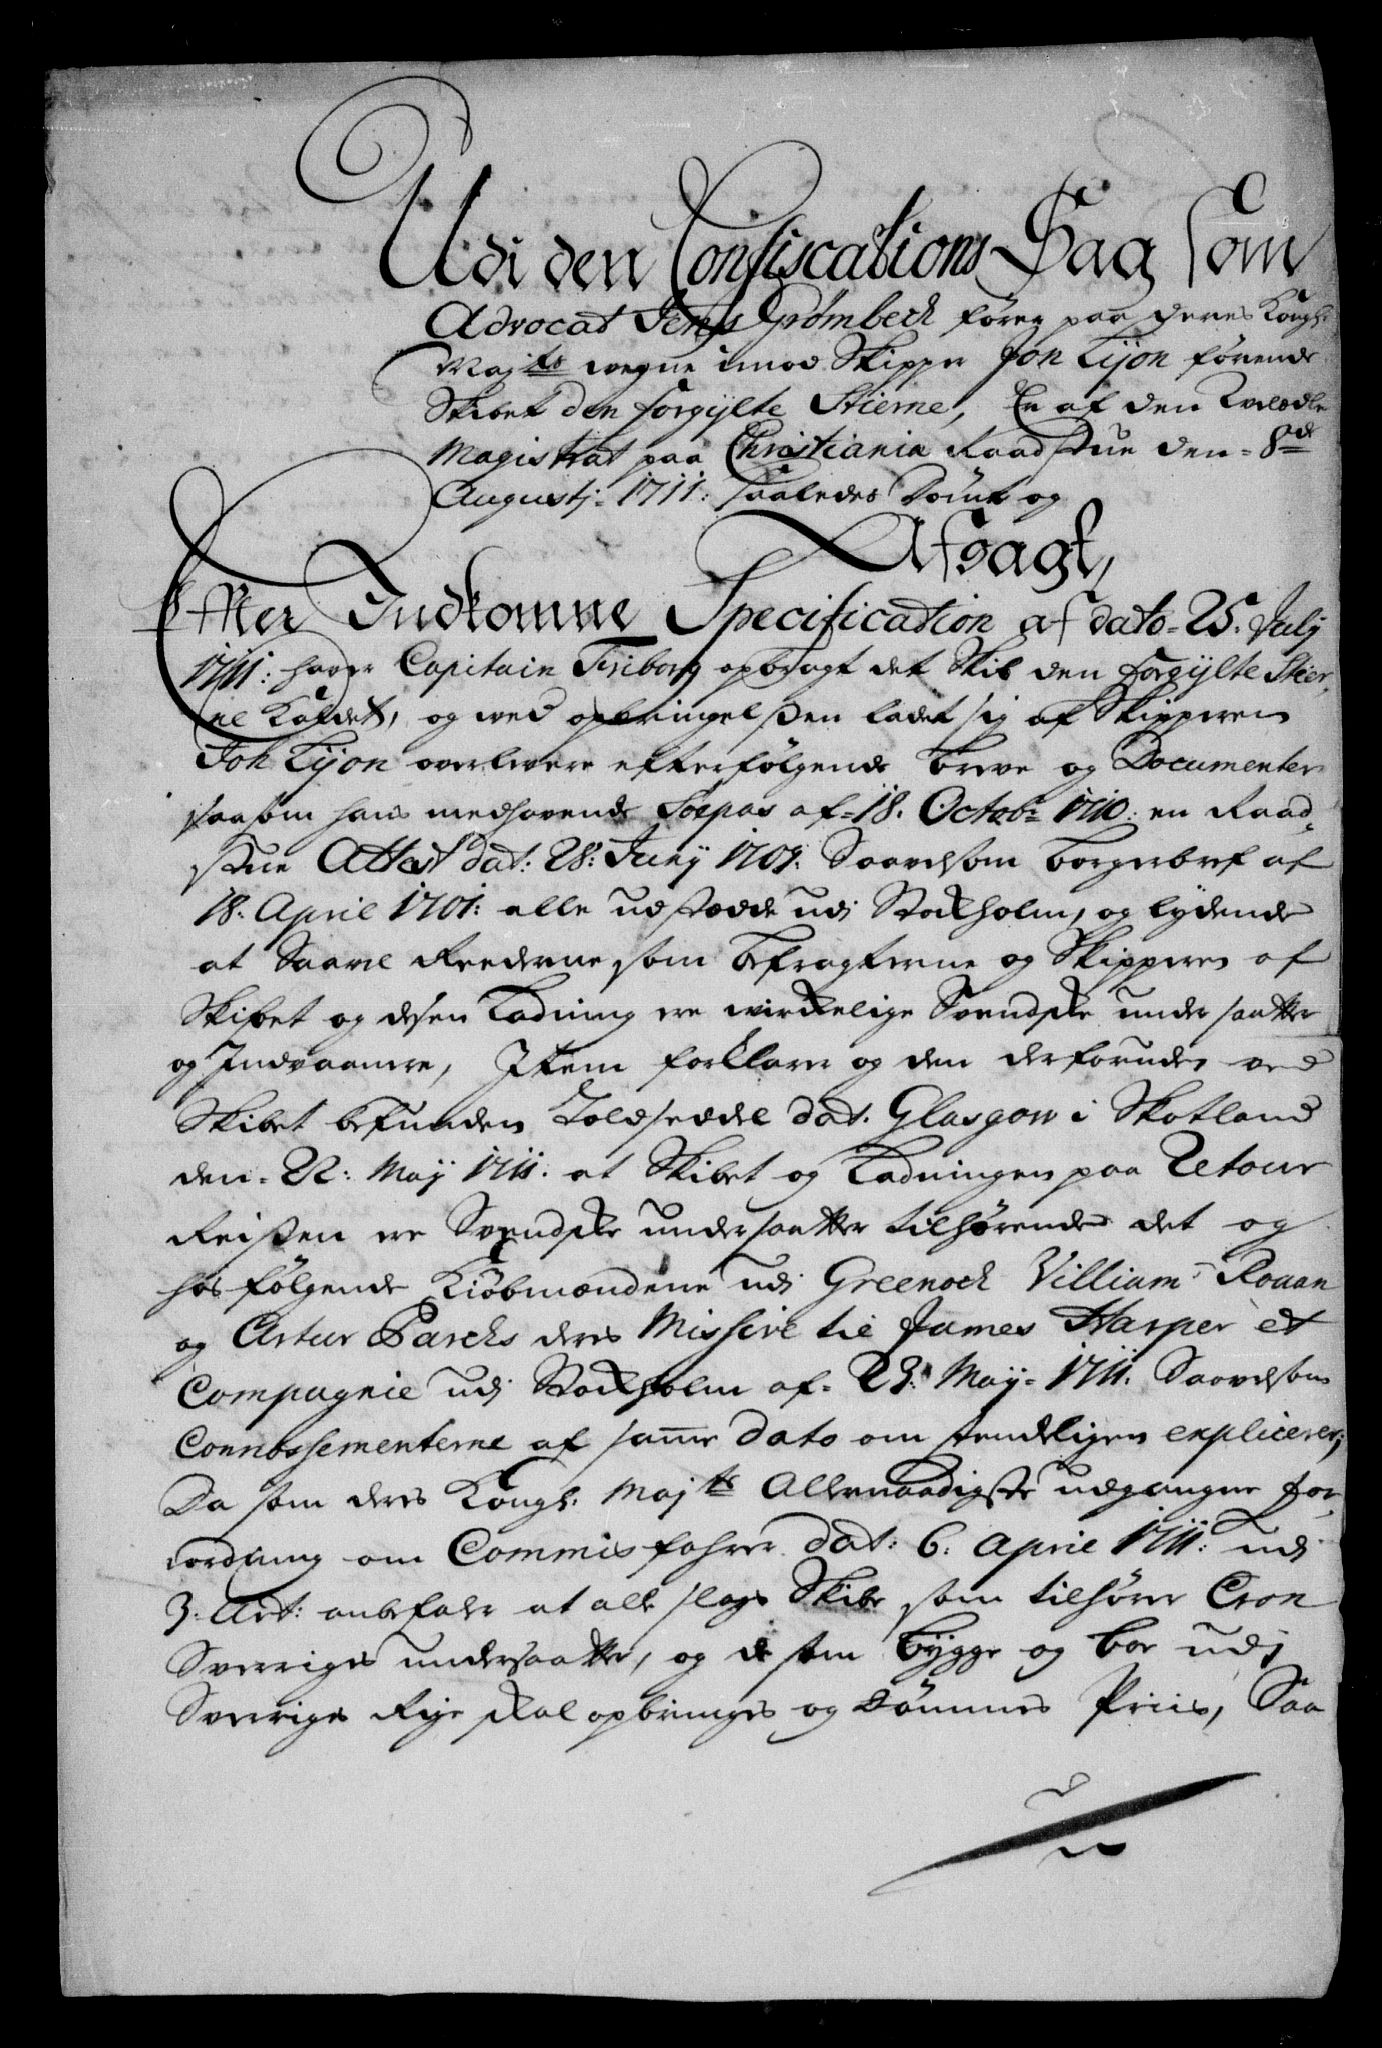 Udi den Confiscations Sag som
Advocat Jens Grømbech fører paa deres Kongl:
Maj:ts wegne imod Skipper Jon Lijon førende
Skibet den forgÿlte Stierne, Er af den Vel ædle
Magistrat paa Christiania Raadstue den 8de
Augustj 1711: saaledes dømt og
Afsagt,
Effter Indkomne Specification af dato 25. Julÿ
1711: hafver Capitain Friborg opbragt det Skib den forgÿlte Stier¬
ne kaldet, og ved opbringelsen ladet sig af Skipperen
Joh Lijon overlevere efterfølgende breve og Documenter
saasom hans medhavende Søepas af 18. Octob: 1710: en Raad¬
stue Attest dat: 28: Junÿ 1709: Saavelsom borgerbref af
18. April 1701: alle udstædde udj Stockholm, og lydende
at Saavel Reederne som Befragterne og Skipperen af
Skibet og desen Ladning ere virkelige Svendske undersaatter
og Indvaanere, Item forklarer og den derforuden ved
Skibet befunden Toldseddel dat. Glasgow i Skotland
den 22: Maÿ 1711: at Skibet og Ladningen paa Retour
Reisen ere Svendske undersaatter tilhørende det og
hosfølgende Kiøbmændene udj Greenock Villiam Rouan
og Artur Parchs deres Missive til James Harper et
Compagnie udj Stockholm af 23: Maÿ 1711. Saavelsom
Connossementerne af samme dato omstendeligen explicerer;
Da som deres Kongl: Maj:ts Allernaadigste udgangne for¬
ordning om Commisfahrer dat: 6. April 1711: udj
3: Art: anbefaler at alle slags Skibe som tilhører Cron
Sverriges undersaatter, og de som bÿgge og boe udj
Sverriges Rige skal opbringes og dømmes Priis, Saa